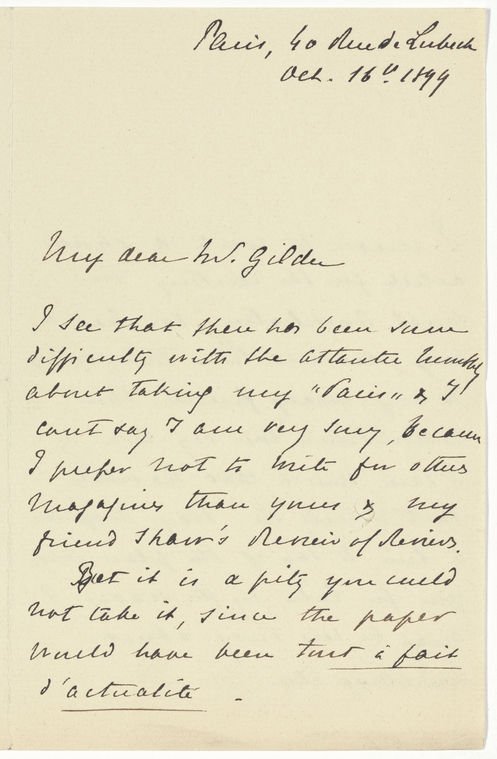 Paris, 40 Rue de Lubeck
Oct. 16th 1899
My dear Mr. Gilder
I see that there has been some
difficulty with the Atlantic Monthly
about taking my "Paris" & I
cant say I am very sorry, because
I prefer not to write for other
Magazines than yours & my
friend Shaw's Review of Reviews.
Yet it is a pity you could
not take it, since the paper
would have been tout à fait
d'actualité.